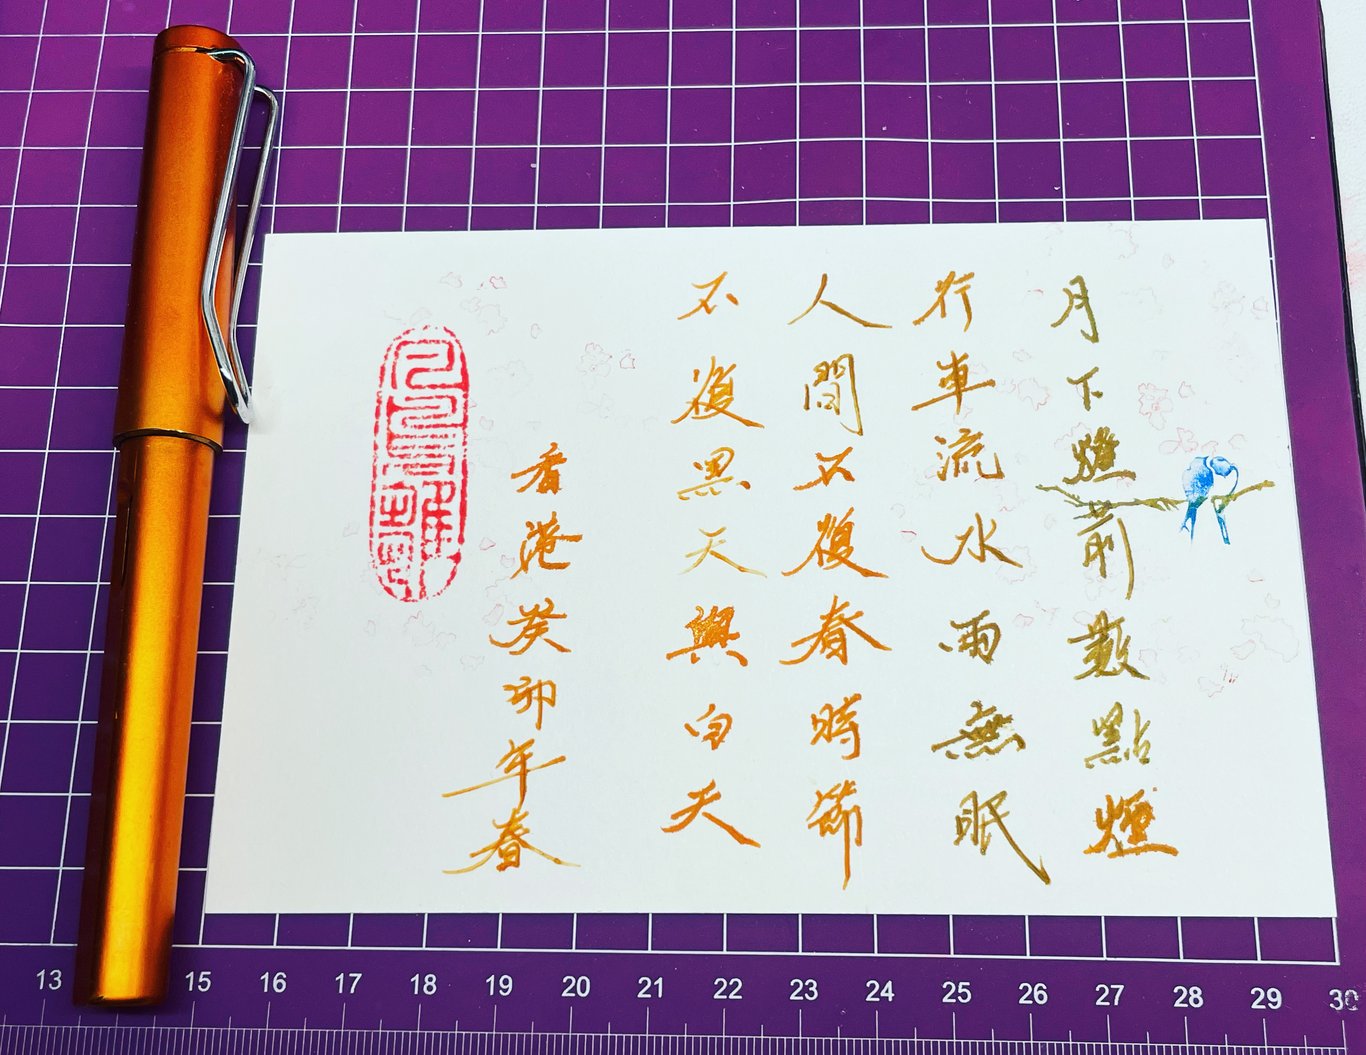 月下燋前數點煙
行車流水雨無眠
人間不復春時節
不復黑天與白天
香港癸卯年春
13 15 16 17 18 19 20 21 22 23 24 25 26 27 28 29 30